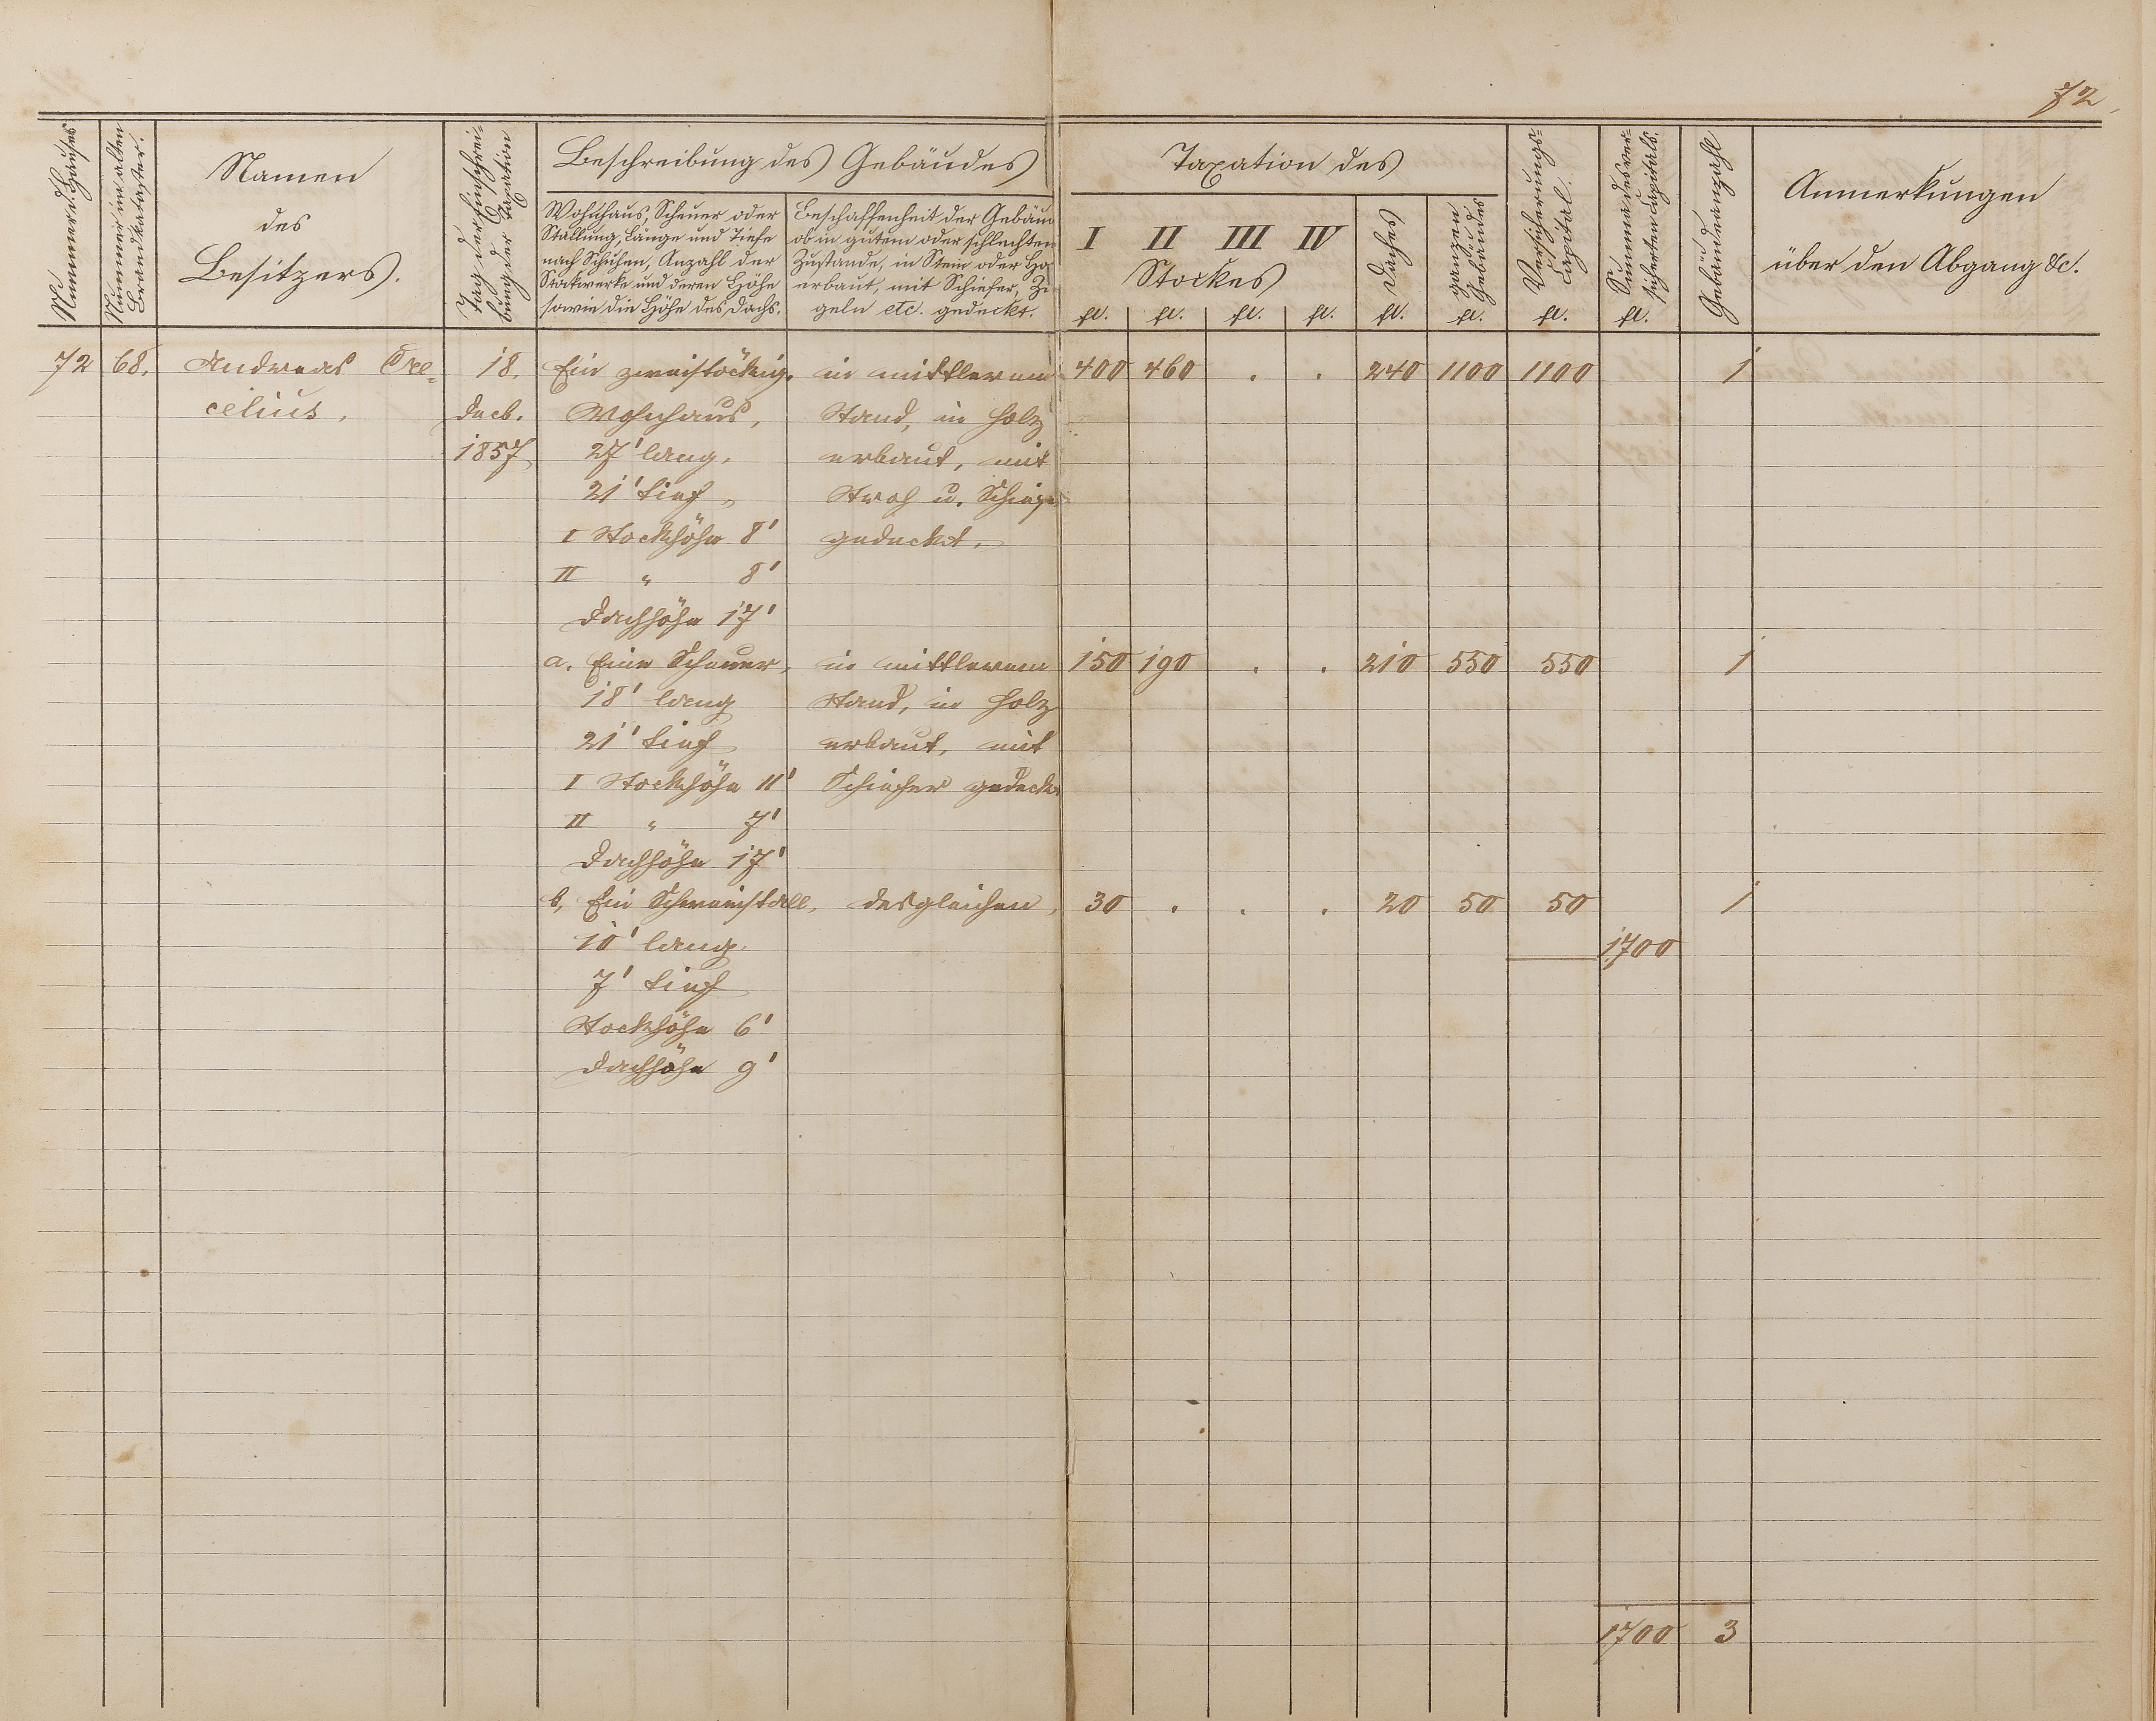 72
Nummer d. Hauses
Nummer im alten
Brandkataster.
Namen
des
Besitzers.
Tag der Einschrei-
bung der Taxation
Beschreibung des Gebäudes
Wohnhaus, Scheuer oder
Stallung, Länge und Tiefe
nach Schuhen, Anzahl der
Stockwerke und deren Höhe
sowie die Höhe des Dachs.
Beschaffenheit der Gebäu
ob in gutem oder schlechten
Zustande, in Stein oder Ho
erbaut, mit Schiefer, Zi-
geln etc. gedeckt.
Taxation des
I II III IV
Stockes
Daches
ganzen
Gebäudes
Versicherungs-
Capital.
Summa des ver-
sicherten Capitals.
Gebäudeanzahl
Anmerkungen
über den Abgang &c.
fl. fl. fl. fl. fl. fl. fl. fl.
72 68. Andreas Cre- 18. Ein zweistöckig. in mittlerem 400 460 . . 240 1100 1100 1
celius. Decb. Wohnhaus, Stand, in Holz
1857 27' lang, erbaut, mit
21' tief, Stroh u. Schiefe
I Stockhöhe 8' gedeckt.
II " 8'
Dachhöhe 17'
a. Eine Scheuer, in mittlerem 150 190 . . 210 550 550 1
18' lang Stand, in Holz
21' tief erbaut, mit
I Stockhöhe 11' Schiefer gedeckt
II " 7'
Dachhöhe 17'
b, Ein Schweinstall, desgleichen, 30 . . . 20 50 50 1
10' lang. 1700
7' tief
Stockhöhe 6'
Dachhöhe 9'
1700 3